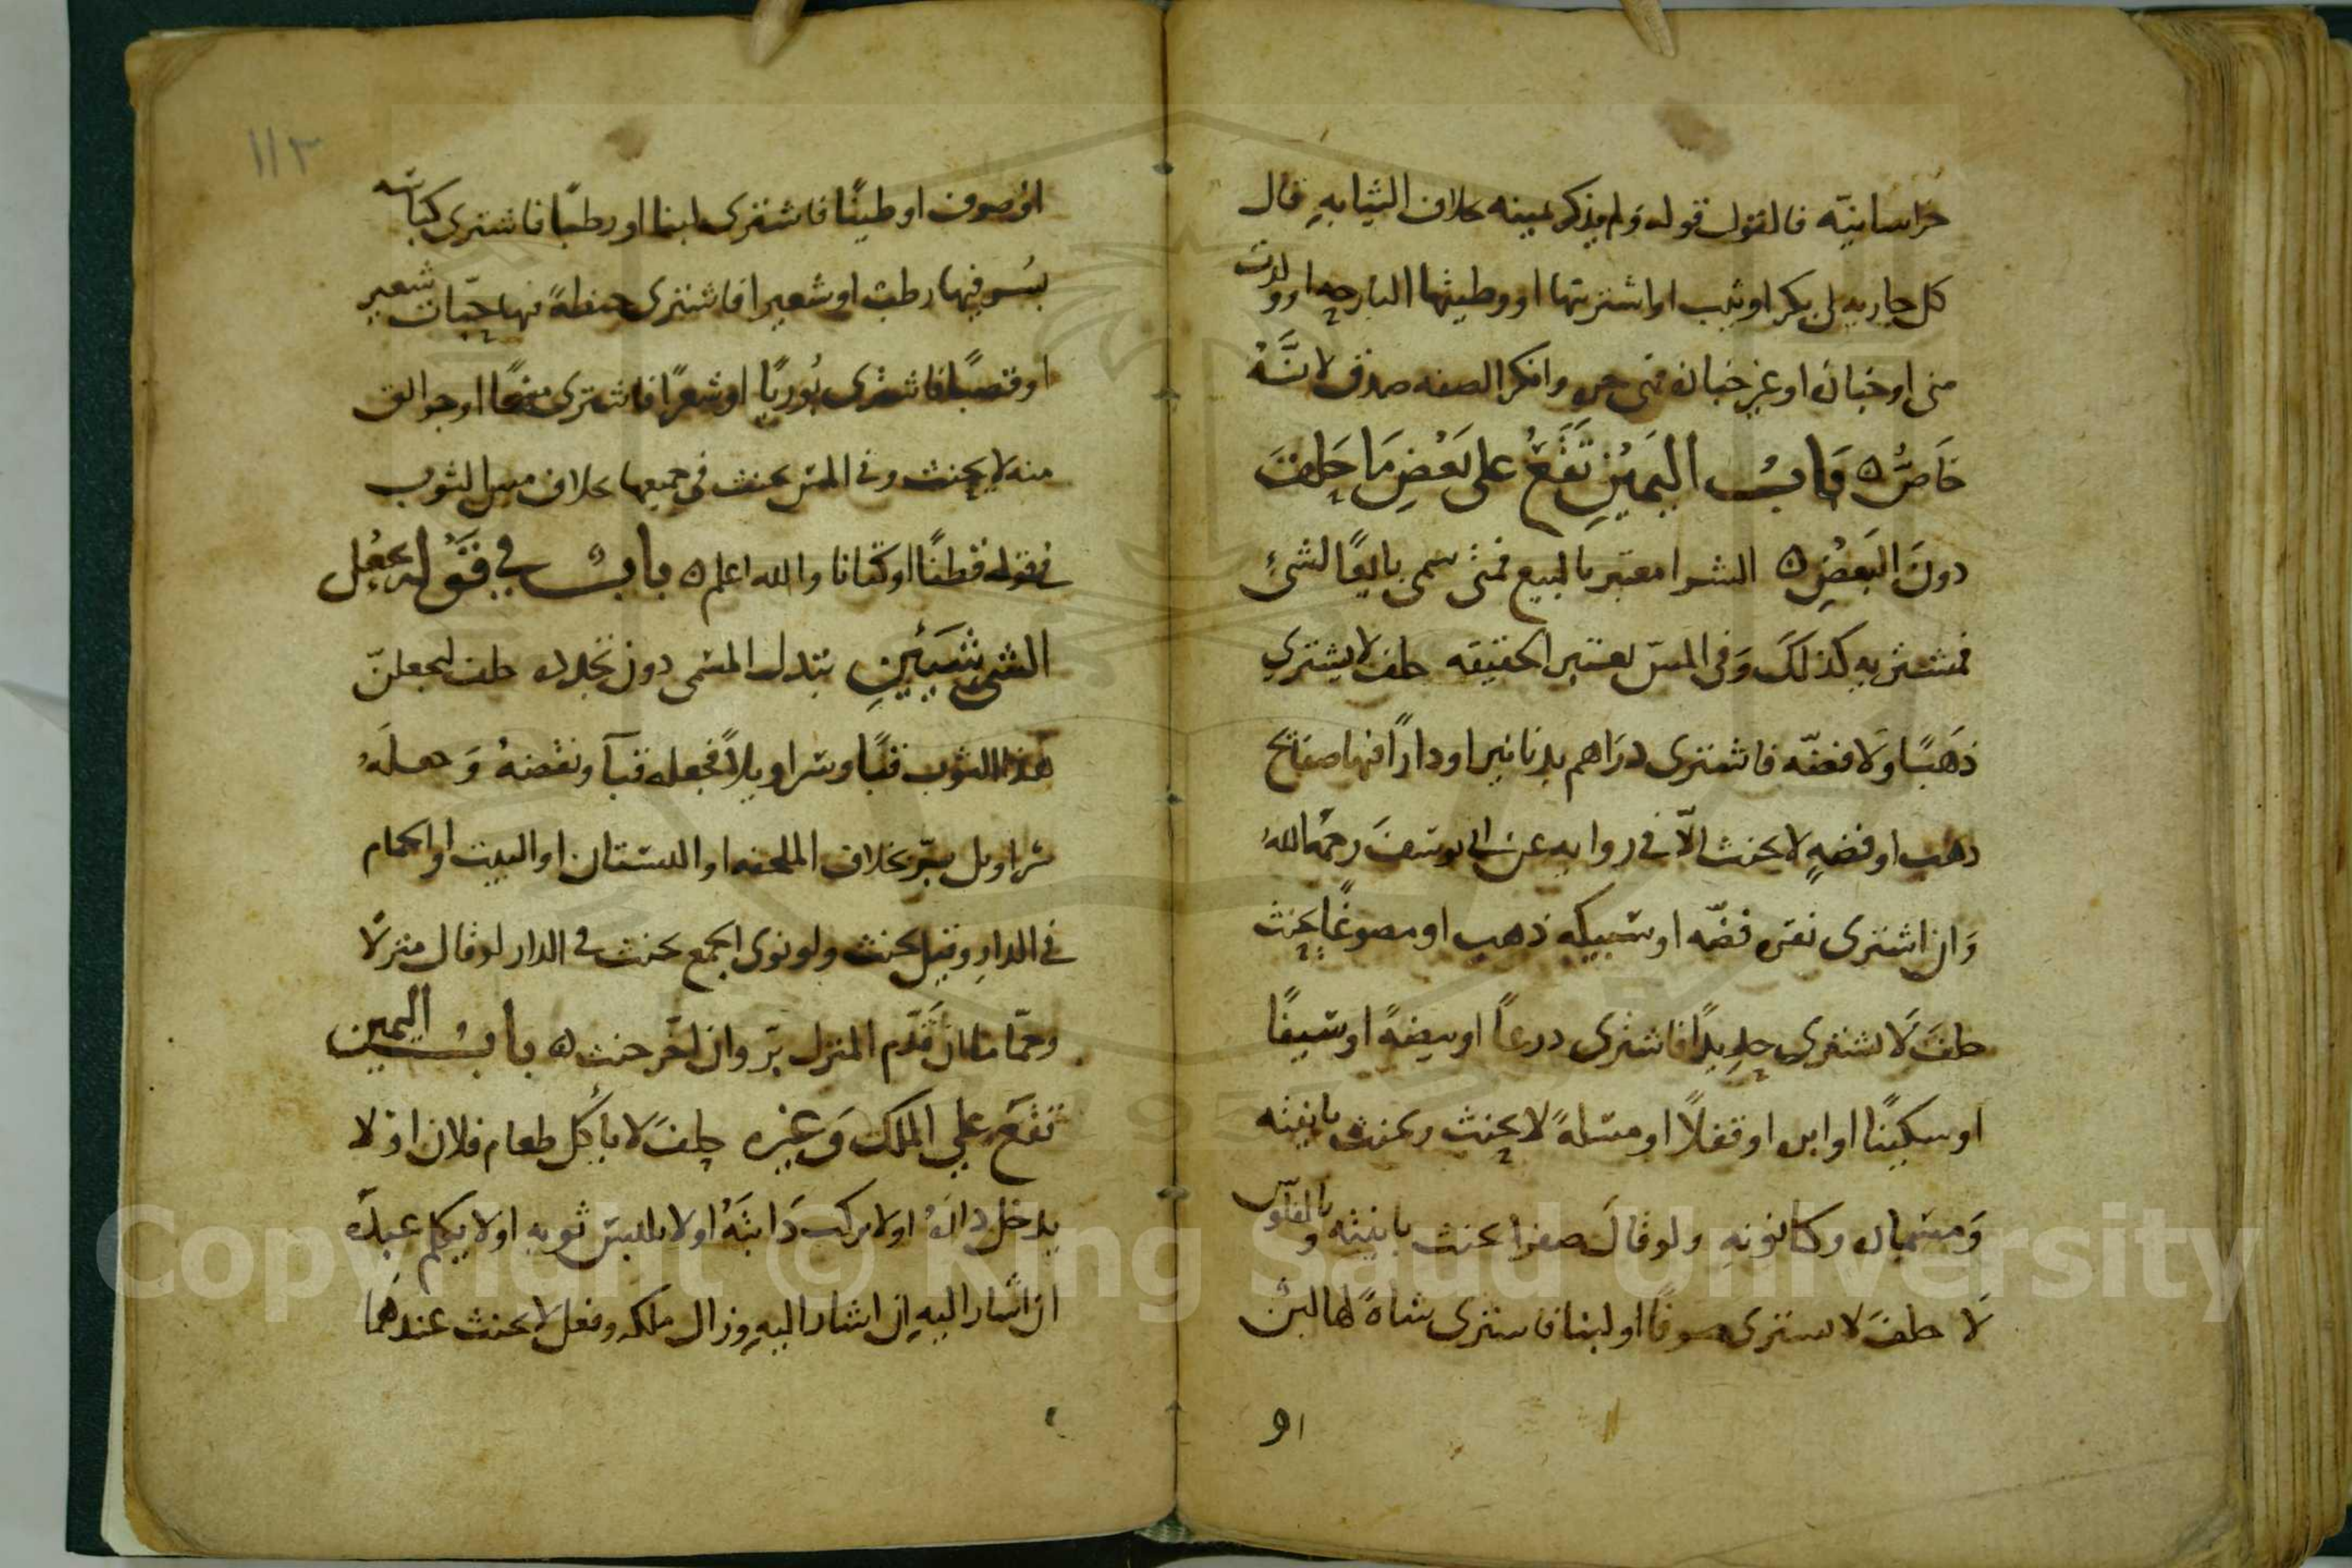 خراسانيّه فالقول قوله ولم يذكر يمينه بخلاف الثيابه قال
كل جاريه لى بكر او ثيب او اشتريتها او وطيتها البارحه او ولدت
منى او خبازه او غير خبازه فهى حره وانكر الصفه صدق لانَّهُ
خَاصٌّ ه بَابُ اليَمِيْنِ تَقَعُ على بَعْضِ مَا حَلفَ
دونَ البَعضِ ه الشرا معتبر بالبيع فمتى سمى بايعًا لشئٍ
فمشتريه كذلكَ وَفى المسّ يعتبر الحقيقه حلف لا يشتري
ذَهَبًا وَلا فضّه فاشترى درَاهم بدنانير او دارًا فيها صفائح
ذهب او فضهٍ لا يحنث الّا فى روايه عن ابى يوسفَ رحمهُ اللهُ
وَان اشترى نقره فضّه او سبيكه ذهب او مصوغًا يحنث
حلفَ لَا يشتري حديدًا فاشترى درعاً او بيضةً او سيفًا
او سكينًا او ابره او قفلًا او مسلهً لا يحنث ويحنث بانيته
وَمسماره وكانونهِ ولو قالَ صفرا يحنث بانيته وبالفلوس
لَا حلفَ لا يشترى صوفًا او لبنا فاشترى شاةً لها لبن
او
١١٣
او صوف او طينًا فاشترى لبنا او رطبًا فاشترى كباسه
بُسر فيها رطب او شعيرا فاشترى حنطةً فيها حبّات شعير
او قصبًا فاشترى بُوريًا او شعرًا فاشترى مسحًا او جوالق
منه لا يحنث وفى المس يحنث فى جميعها بخلاف مس الثوب
فى قوله قطنًا او كتانا والله اعلم ه بابُ في قَوْله يجعُل
الشئ شيَئينِ بتبدل المسمى دون تجدده حلف ليجعلنّ
هذا الثوب قبًا وسراويلاً فجعله قبآ ونقضهُ وَجعلَهُ
سراويل يبرّ بخلاف الملحفه او البستان او البيت او الحمام
فى الدارِ وقيل يحنث ولو نوى الجمع يحنث فى الدار لو قال منزلًا
وحمّاما ان قَدَّم المنزل برّ وان اخّر حنث ه بابُ اليمين
تقَع علي الملك وَغيره حلفَ لا ياكُل طعام فلان او لا
يدخل دارَهُ او لا يركب دَابتَهُ او لا يلبس ثوبه او لا يكلم عبدَه
ان اشار اليهِ ان اشار اليهِ وزال ملكه وفعل لا يحنث عندهَما
Copyright © King Saud University